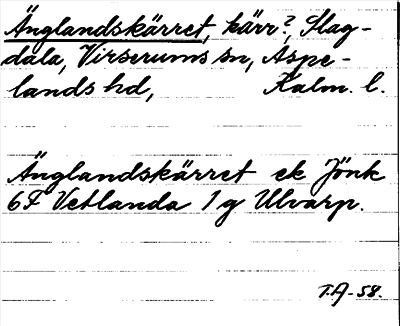 Änglandskärret, kärr?, Slag-
dala, Virserums sn, Aspe-
lands hd, Kalm. l.
Änglandskärret ek Jönk
6F Vetlanda 1 g Ulvarp.
T.A-58.